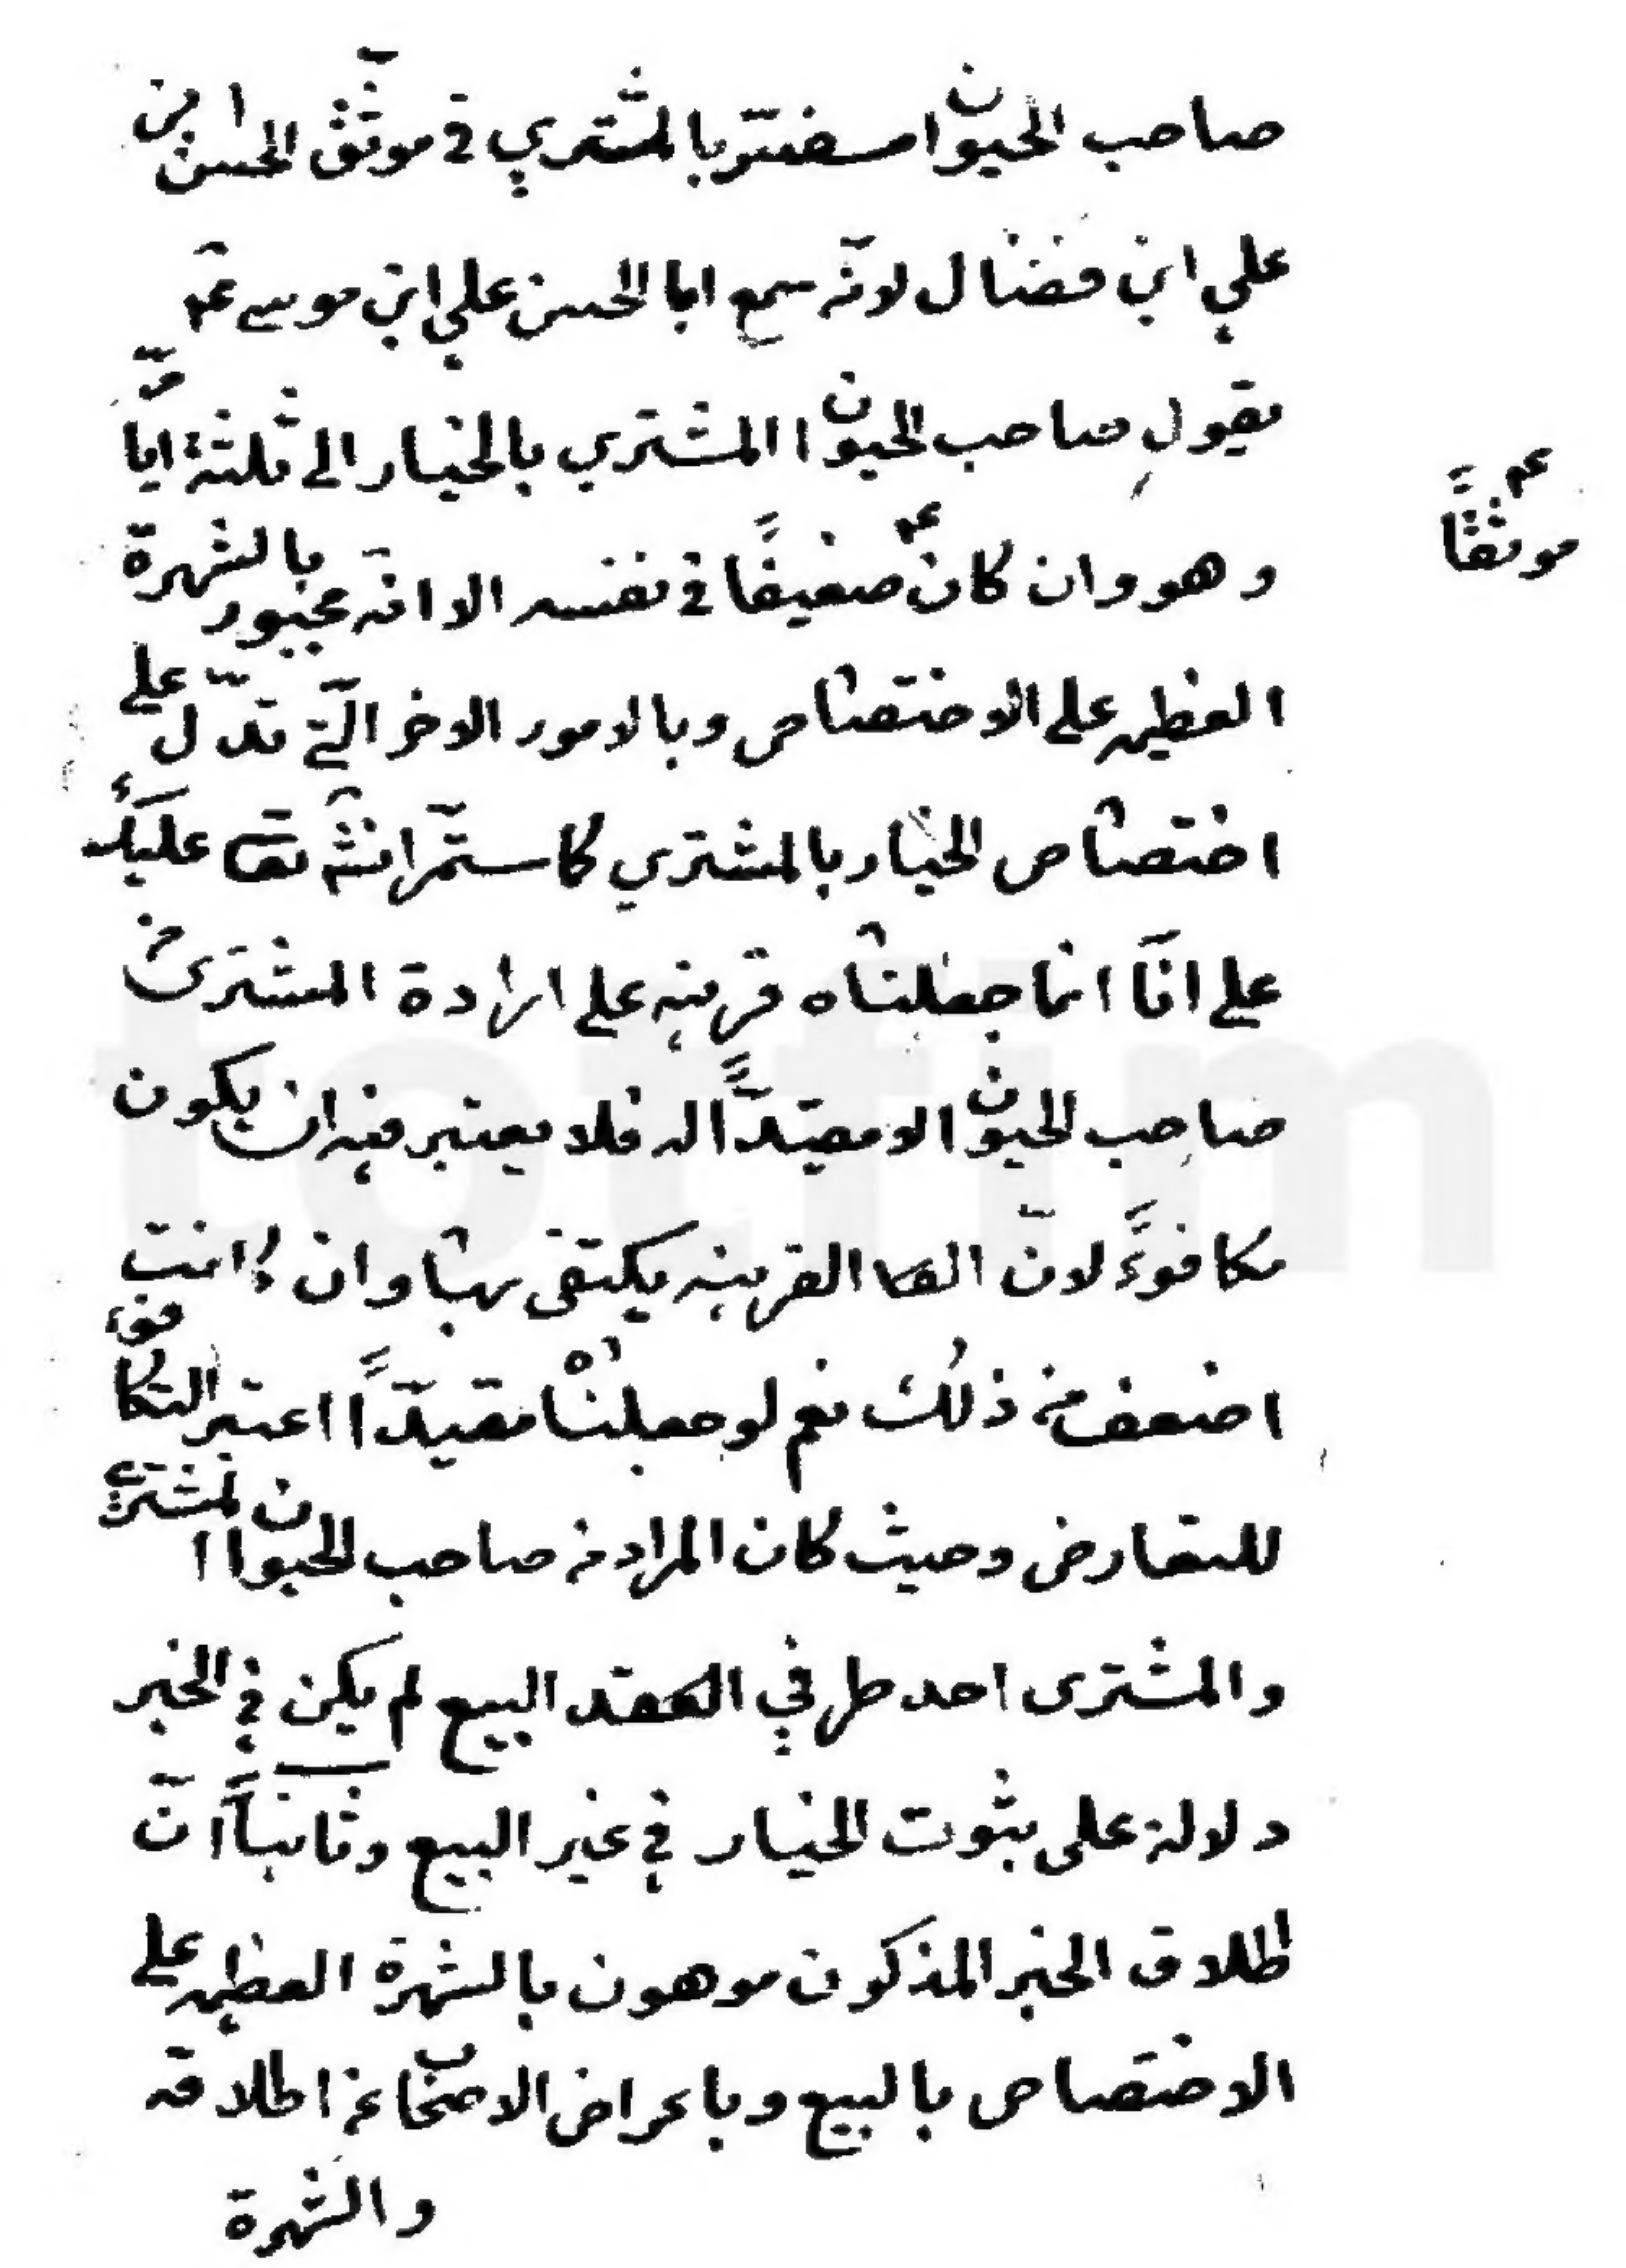 صاحب الحيوان مفسّر بالمشتري في موثّق الحسن ابن
علي ابن فضال لانّه سمع ابا الحسن علي ابن موسى عم
يقول صاحب الحيوان المشتري بالخيار الى ثلثة ايام
وهو وان كان ضعيفًا في نفسه الا انّه مجبور بالشهرة
موثقًا
العظيمه على الاختصاص وبالامور الاخر الّتي تدّل على
اختصاص الخيار بالمشتري
على انّا انما جعلناه قرينه على ارادة المشتري من
صاحب الحيوان لا مقيّدًا له فلا يعتبر فيه ان يكون
مكافوءً لانّ القرينه يكتفى بها وان كانت
اضعف من ذلك نعم لو جعلناه مقيّدًا اعتبر التكافوء
للتعارض وحيث كان المراد من صاحب الحيوان المشتري
والمشترى احد طرفي العقد البيع لم يكن في الخبر
دلالة على ثبوت الخيار في غير البيع وثانياً انّ
اطلاق الخبر المذكور موهون بالشهرة العظيمه على
الاختصاص بالبيع وباعراض الاصحاب عن اطلاقه
والشهرة